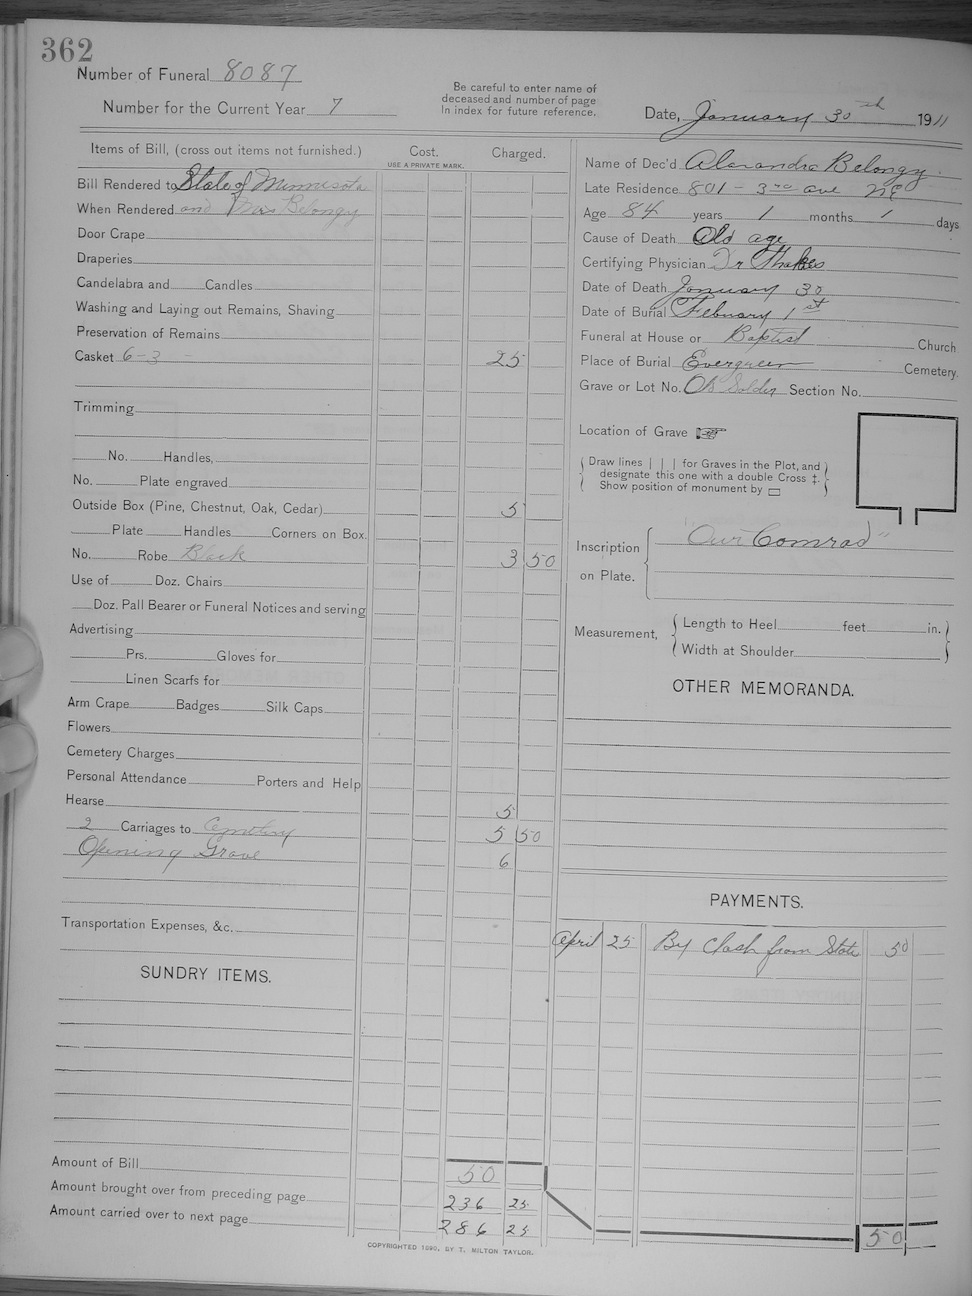 362
Number of Funeral 8087
Number for the Current Year 7
Be careful to enter name of
deceased and number of page
In index for future reference.
Date, January 30th 1911
Items of Bill, (cross out items not furnished.) Cost. Charged.
USE A PRIVATE MARK.
Bill Rendered to State of Minnesota
When Rendered and Mrs Belongy
Door Crape
Draperies
Candelabra and Candles
Washing and Laying out Remains, Shaving
Preservation of Remains
Casket 6-3 25
Trimming
No. Handles,
No. Plate engraved
Outside Box (Pine, Chestnut, Oak, Cedar) 5
Plate Handles Corners on Box.
No. Robe Black 3 50
Use of Doz. Chairs
Doz. Pall Bearer or Funeral Notices and serving
Advertising
Prs. Gloves for
Linen Scarfs for
Arm Crape Badges Silk Caps
Flowers
Cemetery Charges
Personal Attendance Porters and Help
Hearse 5
2 Carriages to Cemetery 5 50
Opening Grave 6
Transportation Expenses, &c.
SUNDRY ITEMS.
Amount of Bill 50
Amount brought over from preceding page 236 25
Amount carried over to next page 286 25
COPYRIGHTED 1890, BY T. MILTON TAYLOR.
Name of Dec'd Alexandre Belongy.
Late Residence 801 - 3rd ave NE
Age 84 years 1 months 1 days
Cause of Death Old age
Certifying Physician Dr
Date of Death January 30
Date of Burial February 1st
Funeral at House or Baptist Church
Place of Burial Evergreen Cemetery.
Grave or Lot No. Old Soldier Section No.
Location of Grave
Draw lines | | | for Graves in the Plot, and
designate this one with a double Cross ‡.
Show position of monument by ▭
Inscription
on Plate.
Our Comrad"
Measurement, Length to Heel feet in.
Width at Shoulder
OTHER MEMORANDA.
PAYMENTS.
April 25 By Cash from State 50
50